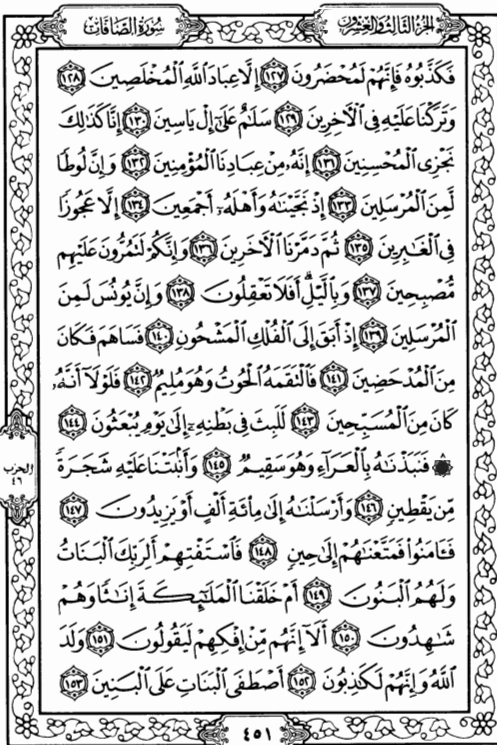 سُورَةُ الصَّافَّاتِ
الجُزْءُ الثَّالِثُ وَالعِشْرُونَ
فَكَذَّبُوهُ فَإِنَّهُمْ لَمُحْضَرُونَ ١٢٧ إِلَّا عِبَادَ ٱللَّهِ ٱلْمُخْلَصِينَ ١٢٨
وَتَرَكْنَا عَلَيْهِ فِي ٱلْأَخِرِينَ ١٢٩ سَلَٰمٌ عَلَىٰٓ إِلْ يَاسِينَ ١٣٠ إِنَّا كَذَٰلِكَ
نَجْزِي ٱلْمُحْسِنِينَ ١٣١ إِنَّهُۥ مِنْ عِبَادِنَا ٱلْمُؤْمِنِينَ ١٣٢ وَإِنَّ لُوطًا
لَّمِنَ ٱلْمُرْسَلِينَ ١٣٣ إِذْ نَجَّيْنَٰهُ وَأَهْلَهُۥٓ أَجْمَعِينَ ١٣٤ إِلَّا عَجُوزًا
فِي ٱلْغَٰبِرِينَ ١٣٥ ثُمَّ دَمَّرْنَا ٱلْأَخَرِينَ ١٣٦ وَإِنَّكُمْ لَتَمُرُّونَ عَلَيْهِم
مُّصْبِحِينَ ١٣٧ وَبِٱلَّيْلِۗ أَفَلَا تَعْقِلُونَ ١٣٨ وَإِنَّ يُونُسَ لَمِنَ
ٱلْمُرْسَلِينَ ١٣٩ إِذْ أَبَقَ إِلَى ٱلْفُلْكِ ٱلْمَشْحُونِ ١٤٠ فَسَاهَمَ فَكَانَ
مِنَ ٱلْمُدْحَضِينَ ١٤١ فَٱلْتَقَمَهُ ٱلْحُوتُ وَهُوَ مُلِيمٌ ١٤٢ فَلَوْلَآ أَنَّهُۥ
كَانَ مِنَ ٱلْمُسَبِّحِينَ ١٤٣ لَلَبِثَ فِي بَطْنِهِۦٓ إِلَىٰ يَوْمِ يُبْعَثُونَ ١٤٤
۞ فَنَبَذْنَٰهُ بِٱلْعَرَآءِ وَهُوَ سَقِيمٌ ١٤٥ وَأَنۢبَتْنَا عَلَيْهِ شَجَرَةً
مِّن يَقْطِينٍ ١٤٦ وَأَرْسَلْنَٰهُ إِلَىٰ مِا۟ئَةِ أَلْفٍ أَوْ يَزِيدُونَ ١٤٧
فَـَٔامَنُوا۟ فَمَتَّعْنَٰهُمْ إِلَىٰ حِينٍ ١٤٨ فَٱسْتَفْتِهِمْ أَلِرَبِّكَ ٱلْبَنَاتُ
وَلَهُمُ ٱلْبَنُونَ ١٤٩ أَمْ خَلَقْنَا ٱلْمَلَٰٓئِكَةَ إِنَٰثًا وَهُمْ
شَٰهِدُونَ ١٥٠ أَلَآ إِنَّهُم مِّنْ إِفْكِهِمْ لَيَقُولُونَ ١٥١ وَلَدَ
ٱللَّهُ وَإِنَّهُمْ لَكَٰذِبُونَ ١٥٢ أَصْطَفَى ٱلْبَنَاتِ عَلَى ٱلْبَنِينَ ١٥٣
الحزب
٤٦
٤٥١